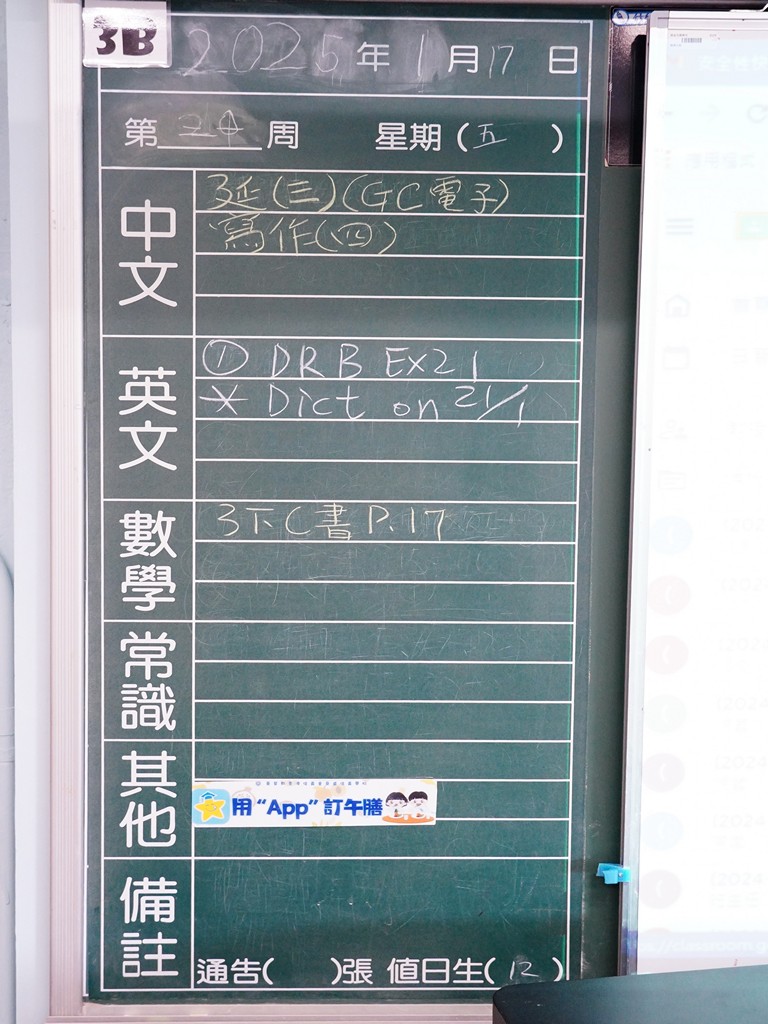 3B
2025年1月17日
第20周 星期(五)
中文
延(三)(GC電子)
寫作(四)
英文
① DRB Ex21
* Dict on 21/1
數學
3下C書P.17
常識
其他
用“App”訂午膳
備註
通告( )張 值日生(12)